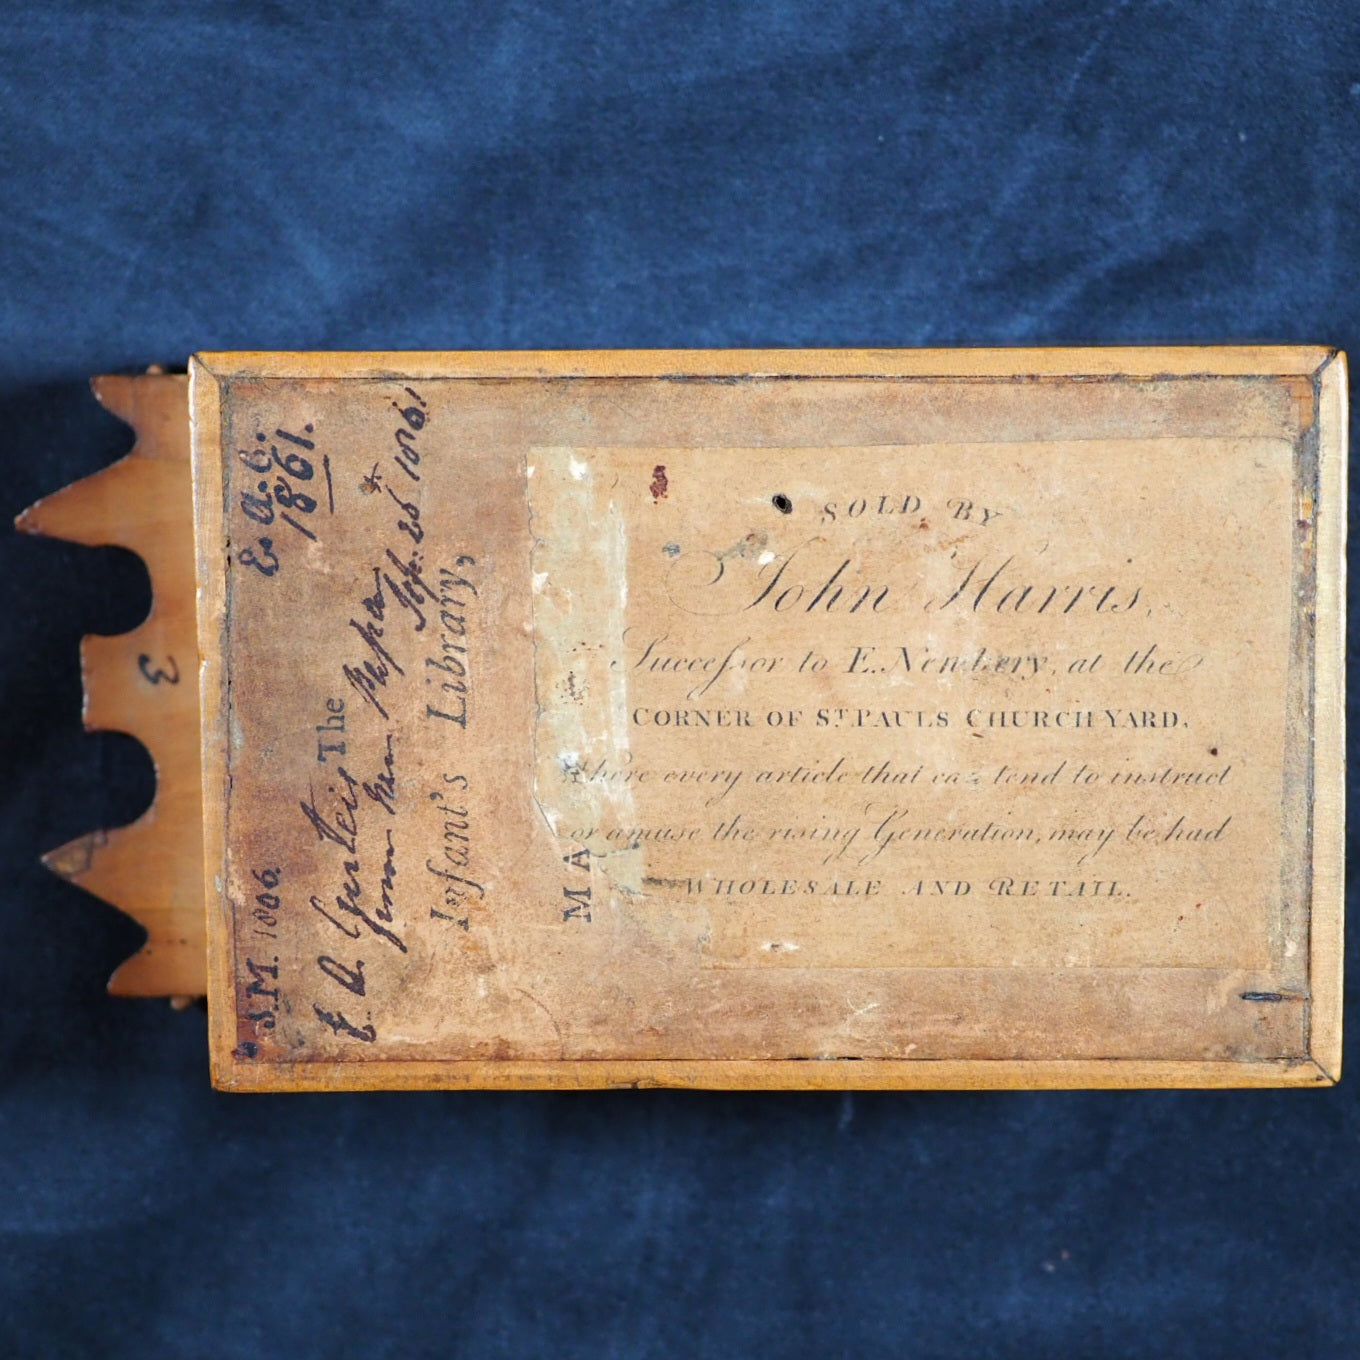 SOLD BY
John Harris,
Succeſsor to E. Newbery, at the
CORNER OF ST. PAULS CHURCH YARD,
Where every article that can tend to instruct
or amuse the rising Generation, may be had
WHOLESALE AND RETAIL.
E. A. C.
1861.
S.M. 1806.
The
Infant's Library,
MA
3